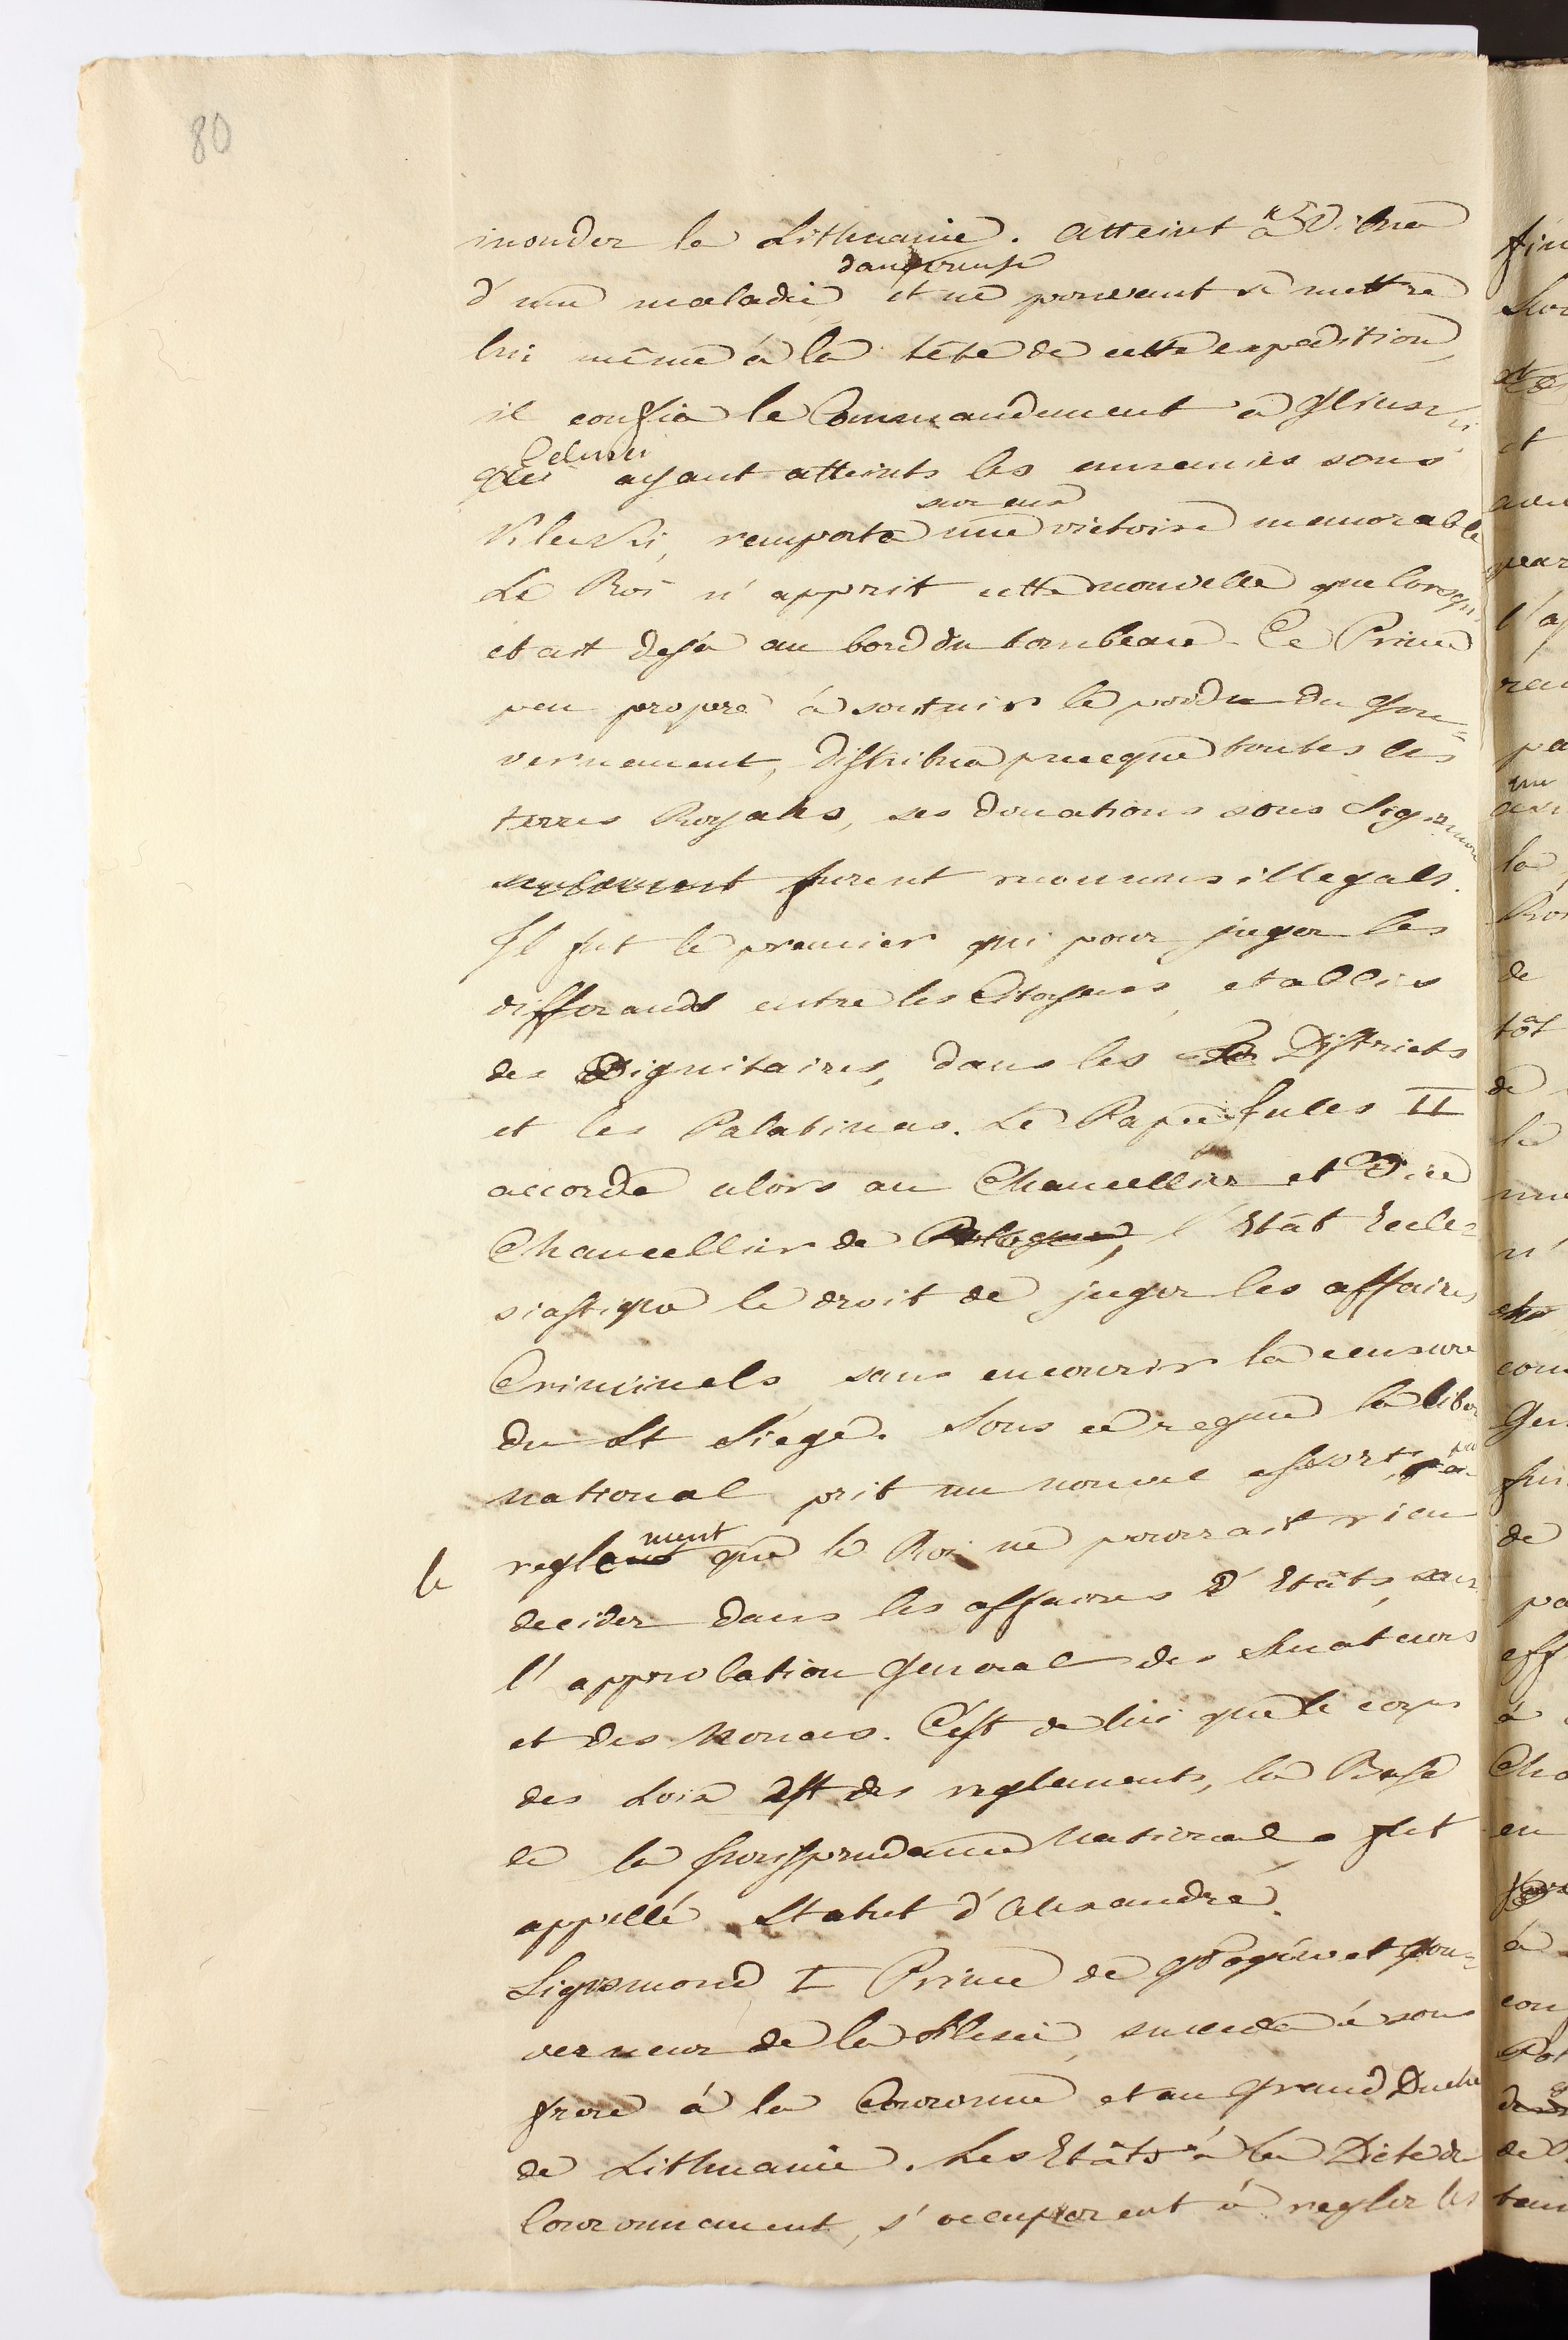 80
inonder la Lithuanie. Atteint à Vilna
d'une maladie dangereuse et ne pouvant se mettre
lui même à la tête de cette expedition,
il confia le Commandement à Glinski
Celui ci ayant atteints les ennemies sous
Kleuski, remporta sur eux une victoire memorable
Le Roi n'apprit cette nouvelle que lorsqu'il
etait deja au bord du tombeau. Ce Prince
peu propre à soutenir le poids du Gou=
vernement, distribua presque toutes les
terres Royales, ses donations sous Sigismond
furent reconnus illegals.
Il fut le premier qui pour juger les
differands entre les Citoyens, etablies
des Dignitaires, dans les Districts
et les Palatinas. Le Pape Jules II
accorda alors au Chancellier et Vice
Chancellier de l'Etât Eccle=
siastique le droit de juger les affaires
Criminels, sans encourir la censure
du St Siège. Sous ce regne la liber
national prit un nouvel essort, par
le reglement que le Roi ne pourrait rien
decider dans les affaires d'Etâts, sans
l'approbation General des Senateurs
et des Nonces. C'est de lui que le corps
des Loix est des reglements, la Base
de la Jurisprudance National fut
appellé Statut d'Alexandre.
Sigismond I Prince de Glogów et Gou=
verneur de la Silesie, succeda à son
frere à la Couronne et au Grand Duché
de Lithuanie. Les Etâts à la Diète de
Couronnement, s'occuperent à regler les